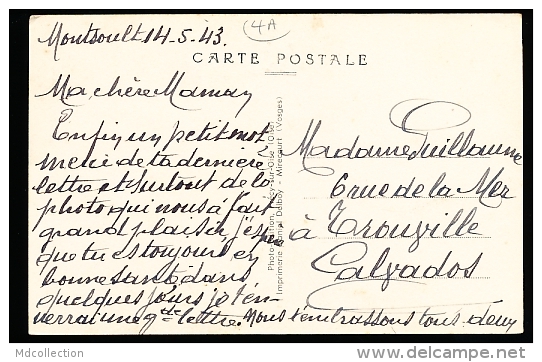 4A
Montsoult 14-5-43.
CARTE POSTALE
Ma chère Maman
Enfin un petit mot
merci de ta dernière
lettre et surtout de la
photo qui nous à fait
grand plaisir j'espère
que tu es toujours en
bonne santé dans
quelques jours je t'en
verrai une gde lettre. Nous t'embrassons tous deux
Madame Guillaume
6 rue de la Mer
à Trouville
Calvados
Imprimerie Daniel Delboy - Mirecourt (Vosges)
Mdcollection
www.delcampe.net